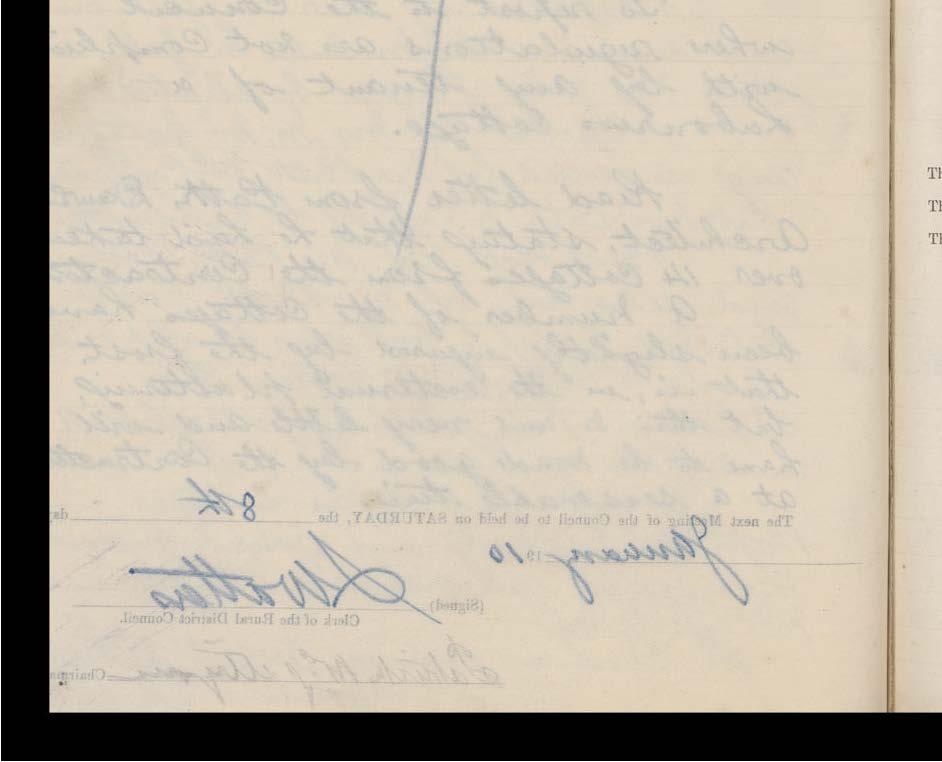 to report to the Council
when regulations are not complied
with by any tenant of a
Labourers Cottage.
Read letter from
Architect, stating that he had taken
over 14 Cottages from the Contractor
A number of the Cottages have
been slightly injured by the frost,
that is, in the external plastering,
but this is very little and will
have to be made good by the Contractor
at a seasonable time.
The next Meeting of the Council to be held on SATURDAY, the 8th day
January 1910
(Signed) J Watters
Clerk of the Rural District Council.
Patrick Chairma
Th
Th
Th